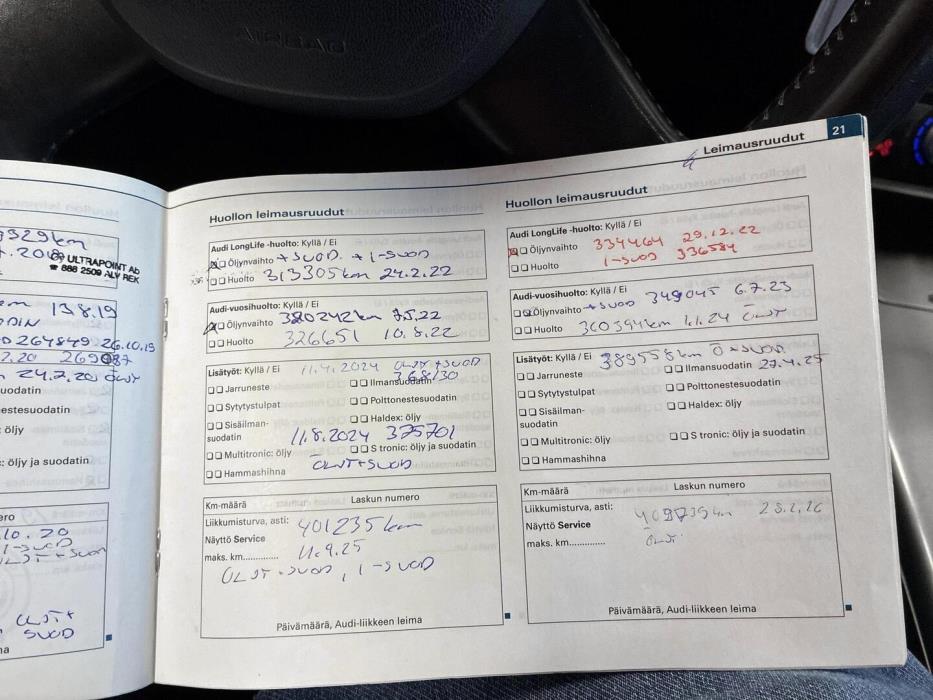 AIRBAG
21
Leimausruudut
329km
ULTRAPOINT Ab
☎ 888 2509 ALV REK
13.8.19
264849 26.10.19
24.2.20
uodatin
estesuodatin
: öljy
: öljy ja suodatin
ero
10.20
1-SUOD
+ SUOD
SUOD
Huollon leimausruudut
Audi LongLife -huolto: Kyllä / Ei
Öljynvaihto + SUOD. + 1-SUOD
Huolto 313305 km 24.2.22
Audi-vuosihuolto: Kyllä / Ei
Öljynvaihto 320242km 7.5.22
Huolto 326651 10.8.22
Lisätyöt: Kyllä / Ei 11.4.2024 ÖLJYT+SUOD
368130
Jarruneste
Ilmansuodatin
Sytytystulpat
Polttonestesuodatin
Sisäilman-
suodatin
Haldex: öljy
11.8.2024 375701
Multitronic: öljy
S tronic: öljy ja suodatin
Hammashihna
ÖLJYT+SUOD
Km-määrä
Laskun numero
Liikkumisturva, asti: 401235 km
Näyttö Service
maks. km.............. 11.9.25
ÖLJYT+SUOD, 1-SUOD
Päivämäärä, Audi-liikkeen leima
Huollon leimausruudut
Audi LongLife -huolto: Kyllä / Ei
Öljynvaihto 334464 29.12.22
Huolto 1-SUOD 336584
Audi-vuosihuolto: Kyllä / Ei
Öljynvaihto +SUOD 349045 6.7.23
Huolto 360394km 1.1.24 ÖLJYT
Lisätyöt: Kyllä / Ei 389558 km Ö+SUOD
Jarruneste
Ilmansuodatin 27.4.25
Sytytystulpat
Polttonestesuodatin
Sisäilman-
suodatin
Haldex: öljy
Multitronic: öljy
S tronic: öljy ja suodatin
Hammashihna
Km-määrä
Laskun numero
Liikkumisturva, asti:
Näyttö Service
maks. km..............
Päivämäärä, Audi-liikkeen leima